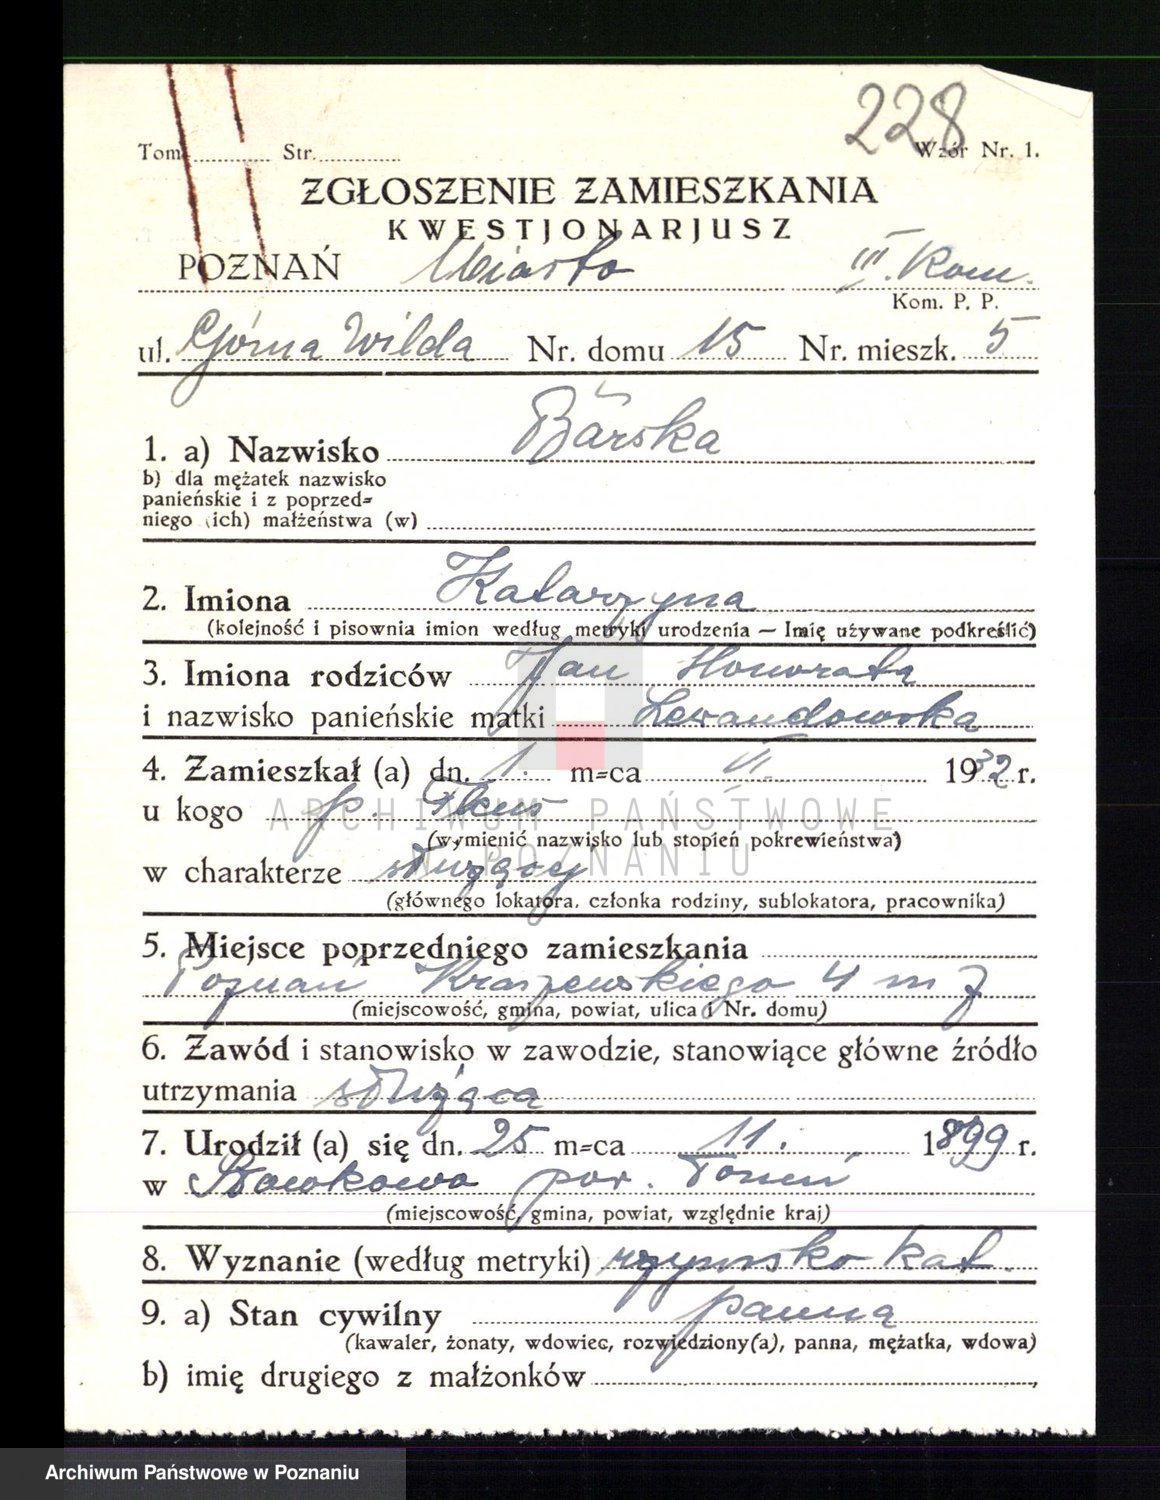 228
Tom Str. Wzór Nr. 1.
ZGŁOSZENIE ZAMIESZKANIA
KWESTJONARJUSZ
POZNAŃ Miasto III. Kom.
Kom. P. P.
ul. Górna Wilda Nr. domu 15 Nr. mieszk. 5
1. a) Nazwisko Barska
b) dla mężatek nazwisko
panieńskie i z poprzed=
niego (ich) małżeństwa (w)
2. Imiona Katarzyna
(kolejność i pisownia imion według metryki urodzenia — Imię używane podkreślić)
3. Imiona rodziców Jan Honorata
i nazwisko panieńskie matki Lewandowska
4. Zamieszkał (a) dn. 1. m=ca VI. 1932 r.
u kogo p.
(wymienić nazwisko lub stopień pokrewieństwa)
w charakterze służącej
(głównego lokatora, członka rodziny, sublokatora, pracownika)
ARCHIWUM PAŃSTWOWE
W POZNANIU
5. Miejsce poprzedniego zamieszkania
Poznań Kraszewskiego 4 m 7
(miejscowość, gmina, powiat, ulica i Nr. domu)
6. Zawód i stanowisko w zawodzie, stanowiące główne źródło
utrzymania służąca
7. Urodził (a) się dn. 25 m=ca 11. 1899 r.
w pow. Toruń
(miejscowość, gmina, powiat, względnie kraj)
8. Wyznanie (według metryki) rzymsko kat.
9. a) Stan cywilny panna
(kawaler, żonaty, wdowiec, rozwiedziony(a), panna, mężatka, wdowa)
b) imię drugiego z małżonków
Archiwum Państwowe w Poznaniu